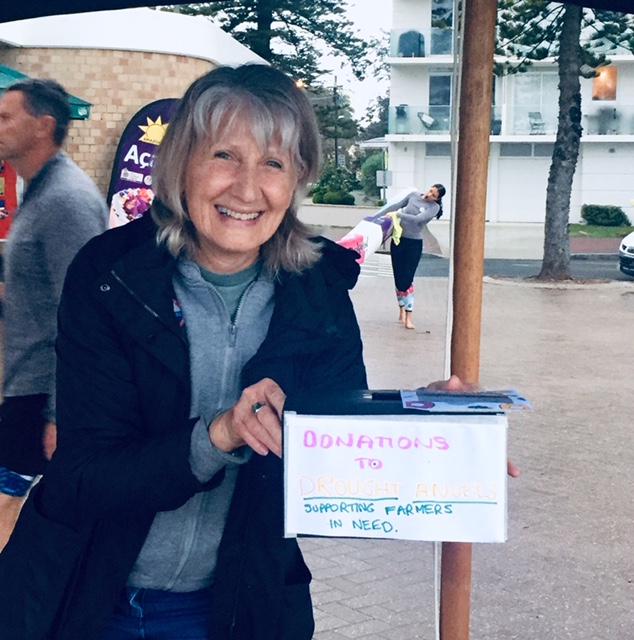 Aç
DONATIONS
TO
DROUGHT ANGELS
SUPPORTING FARMERS
IN NEED.